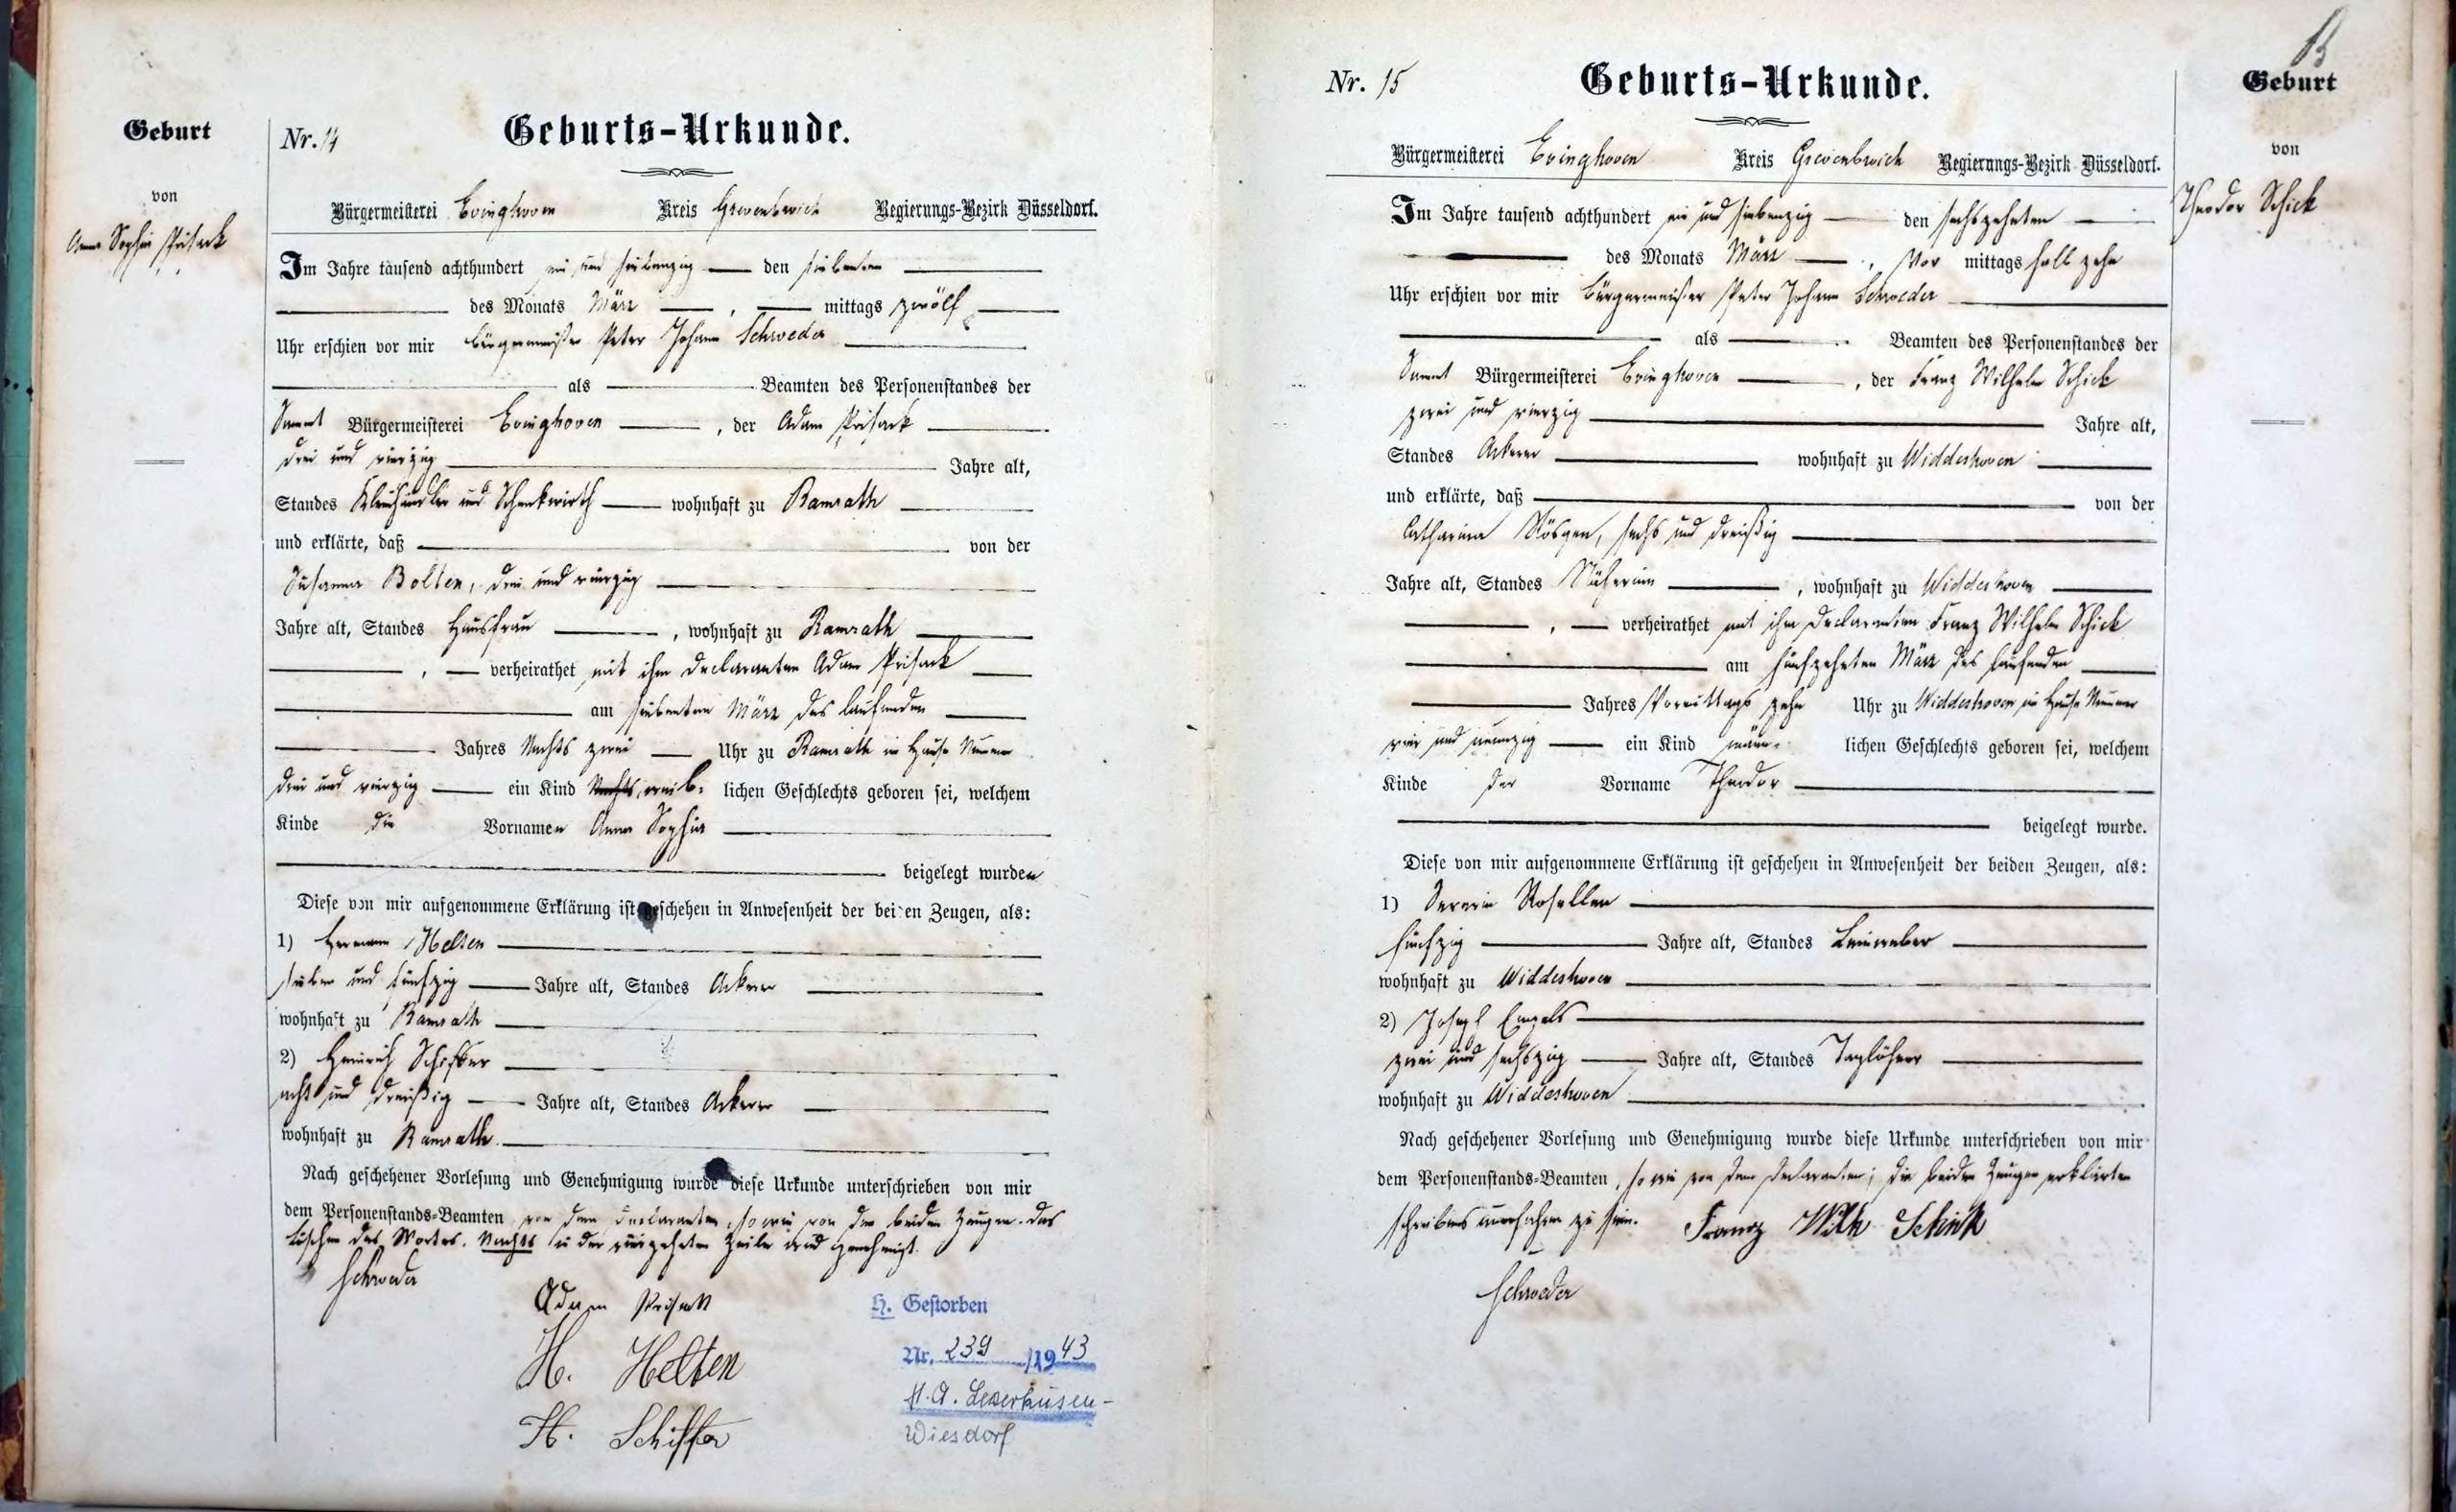 Geburt
von
Anna Sophia Prisack
Nr. 14
Geburts-Urkunde.
Bürgermeisterei Evinghoven Kreis Grevenbroich Regierungs-Bezirk Düsseldorf.
Im Jahre tausend achthundert ein und siebenzig den siebenten
des Monats März , mittags zwölf
Uhr erschien vor mir Bürgermeister Peter Johann Schroeder
als Beamten des Personenstandes der
Sammt Bürgermeisterei Evinghoven , der Adam Prisack
drei und vierzig Jahre alt,
Standes Kleinhändler und Schenkwirth wohnhaft zu Ramrath
und erklärte, daß von der
Susanna Bolten, drei und vierzig
Jahre alt, Standes Hausfrau , wohnhaft zu Ramrath
, verheirathet mit ihm Declaranten Adam Prisack
am siebenten März des laufenden
Jahres Nachts zwei Uhr zu Ramrath im Hause Nummer
drei und vierzig ein Kind Nachts weib- lichen Geschlechts geboren sei, welchem
Kinde die Vornamen Anna Sophia
beigelegt wurden
Diese von mir aufgenommene Erklärung ist geschehen in Anwesenheit der beiden Zeugen, als:
1) Hermann Helten
sieben und fünfzig Jahre alt, Standes Ackerer
wohnhaft zu Ramrath
2) Heinrich Schiffer
acht und dreißig Jahre alt, Standes Ackerer
wohnhaft zu Ramrath.
Nach geschehener Vorlesung und Genehmigung wurde diese Urkunde unterschrieben von mir
dem Personenstands-Beamten von dem Declaranten, so wie von den beiden Zeugen. Das
Löschen des Wortes. Nachts in der vierzehnten Zeile wird genehmigt.
Schroeder
Adam Prisack
H. Helten
H. Schiffer
H. Gestorben
Nr. 239 /1943
St.A. Leverkusen-
Wiesdorf
Nr. 15
Geburts-Urkunde.
Bürgermeisterei Evinghoven Kreis Grevenbroich Regierungs-Bezirk Düsseldorf.
Im Jahre tausend achthundert ein und siebenzig den sechszehnten
des Monats März , Vor mittags halb zehn
Uhr erschien vor mir Bürgermeister Peter Johann Schroeder
als Beamten des Personenstandes der
Sammt Bürgermeisterei Evinghoven , der Franz Wilhelm Schick
zwei und vierzig Jahre alt,
Standes Ackerer wohnhaft zu Widdeshoven
und erklärte, daß von der
Catharina Nösgen, sechs und dreißig
Jahre alt, Standes Näherinn , wohnhaft zu Widdeshoven
, verheirathet mit ihm Declaranten Franz Wilhelm Schick
am fünfzehnten März des laufenden
Jahres Vormittags zehn Uhr zu Widdeshoven im Hause Nummer
vier und neunzig ein Kind männ- lichen Geschlechts geboren sei, welchem
Kinde der Vorname Theodor
beigelegt wurde.
Diese von mir aufgenommene Erklärung ist geschehen in Anwesenheit der beiden Zeugen, als:
1) Severin Rosellen
fünfzig Jahre alt, Standes Leinweber
wohnhaft zu Widdeshoven
2) Joseph Engels
zwei und sechszig Jahre alt, Standes Taglöhner
wohnhaft zu Widdeshoven
Nach geschehener Vorlesung und Genehmigung wurde diese Urkunde unterschrieben von mir
dem Personenstands-Beamten, so wie von dem Declaranten; die beiden Zeugen erklärten
schreibens unerfahren zu sein. Franz Wilh Schick
Schroeder
Geburt
von
Theodor Schick